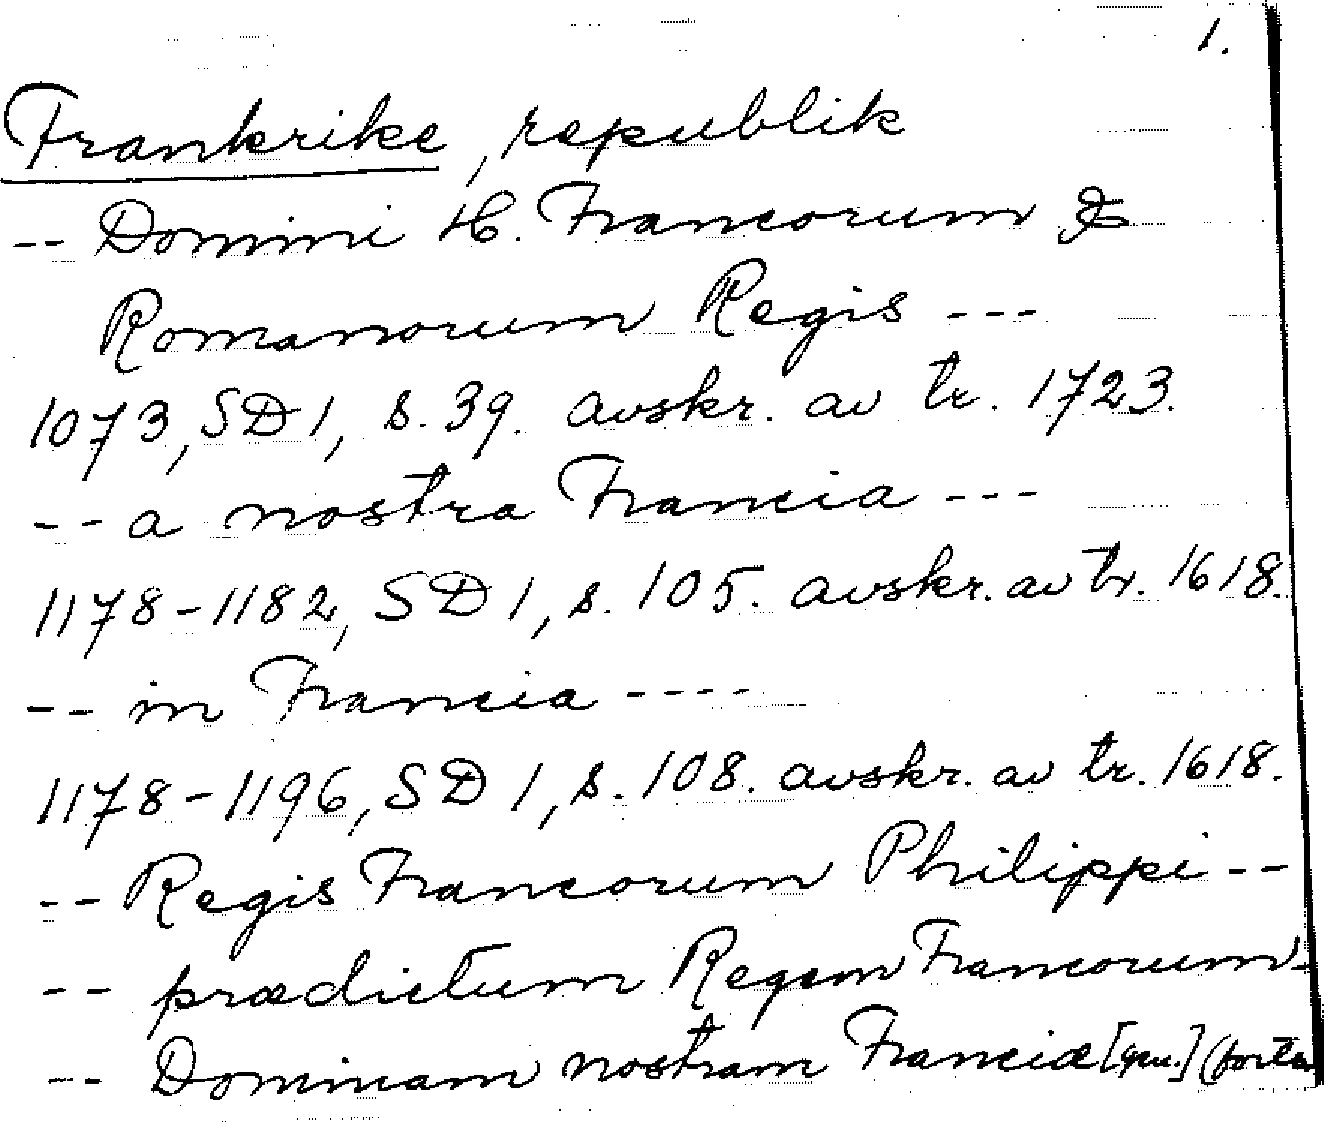 1.
Frankrike, republik
-- Domini H. Francorum &
Romanorum Regis ---
1073, SD 1, s. 39. avskr. av tr. 1723.
-- a nostra Francia ---
1178-1182, SD 1, s. 105. avskr. av tr. 1618.
-- in Francia ----
1178-1196, SD 1, s. 108. avskr. av tr. 1618.
-- Regis Francorum Philippi --
-- prædictum Regem Francorum-
-- Dominam nostram Franciæ [gen.] (forts.